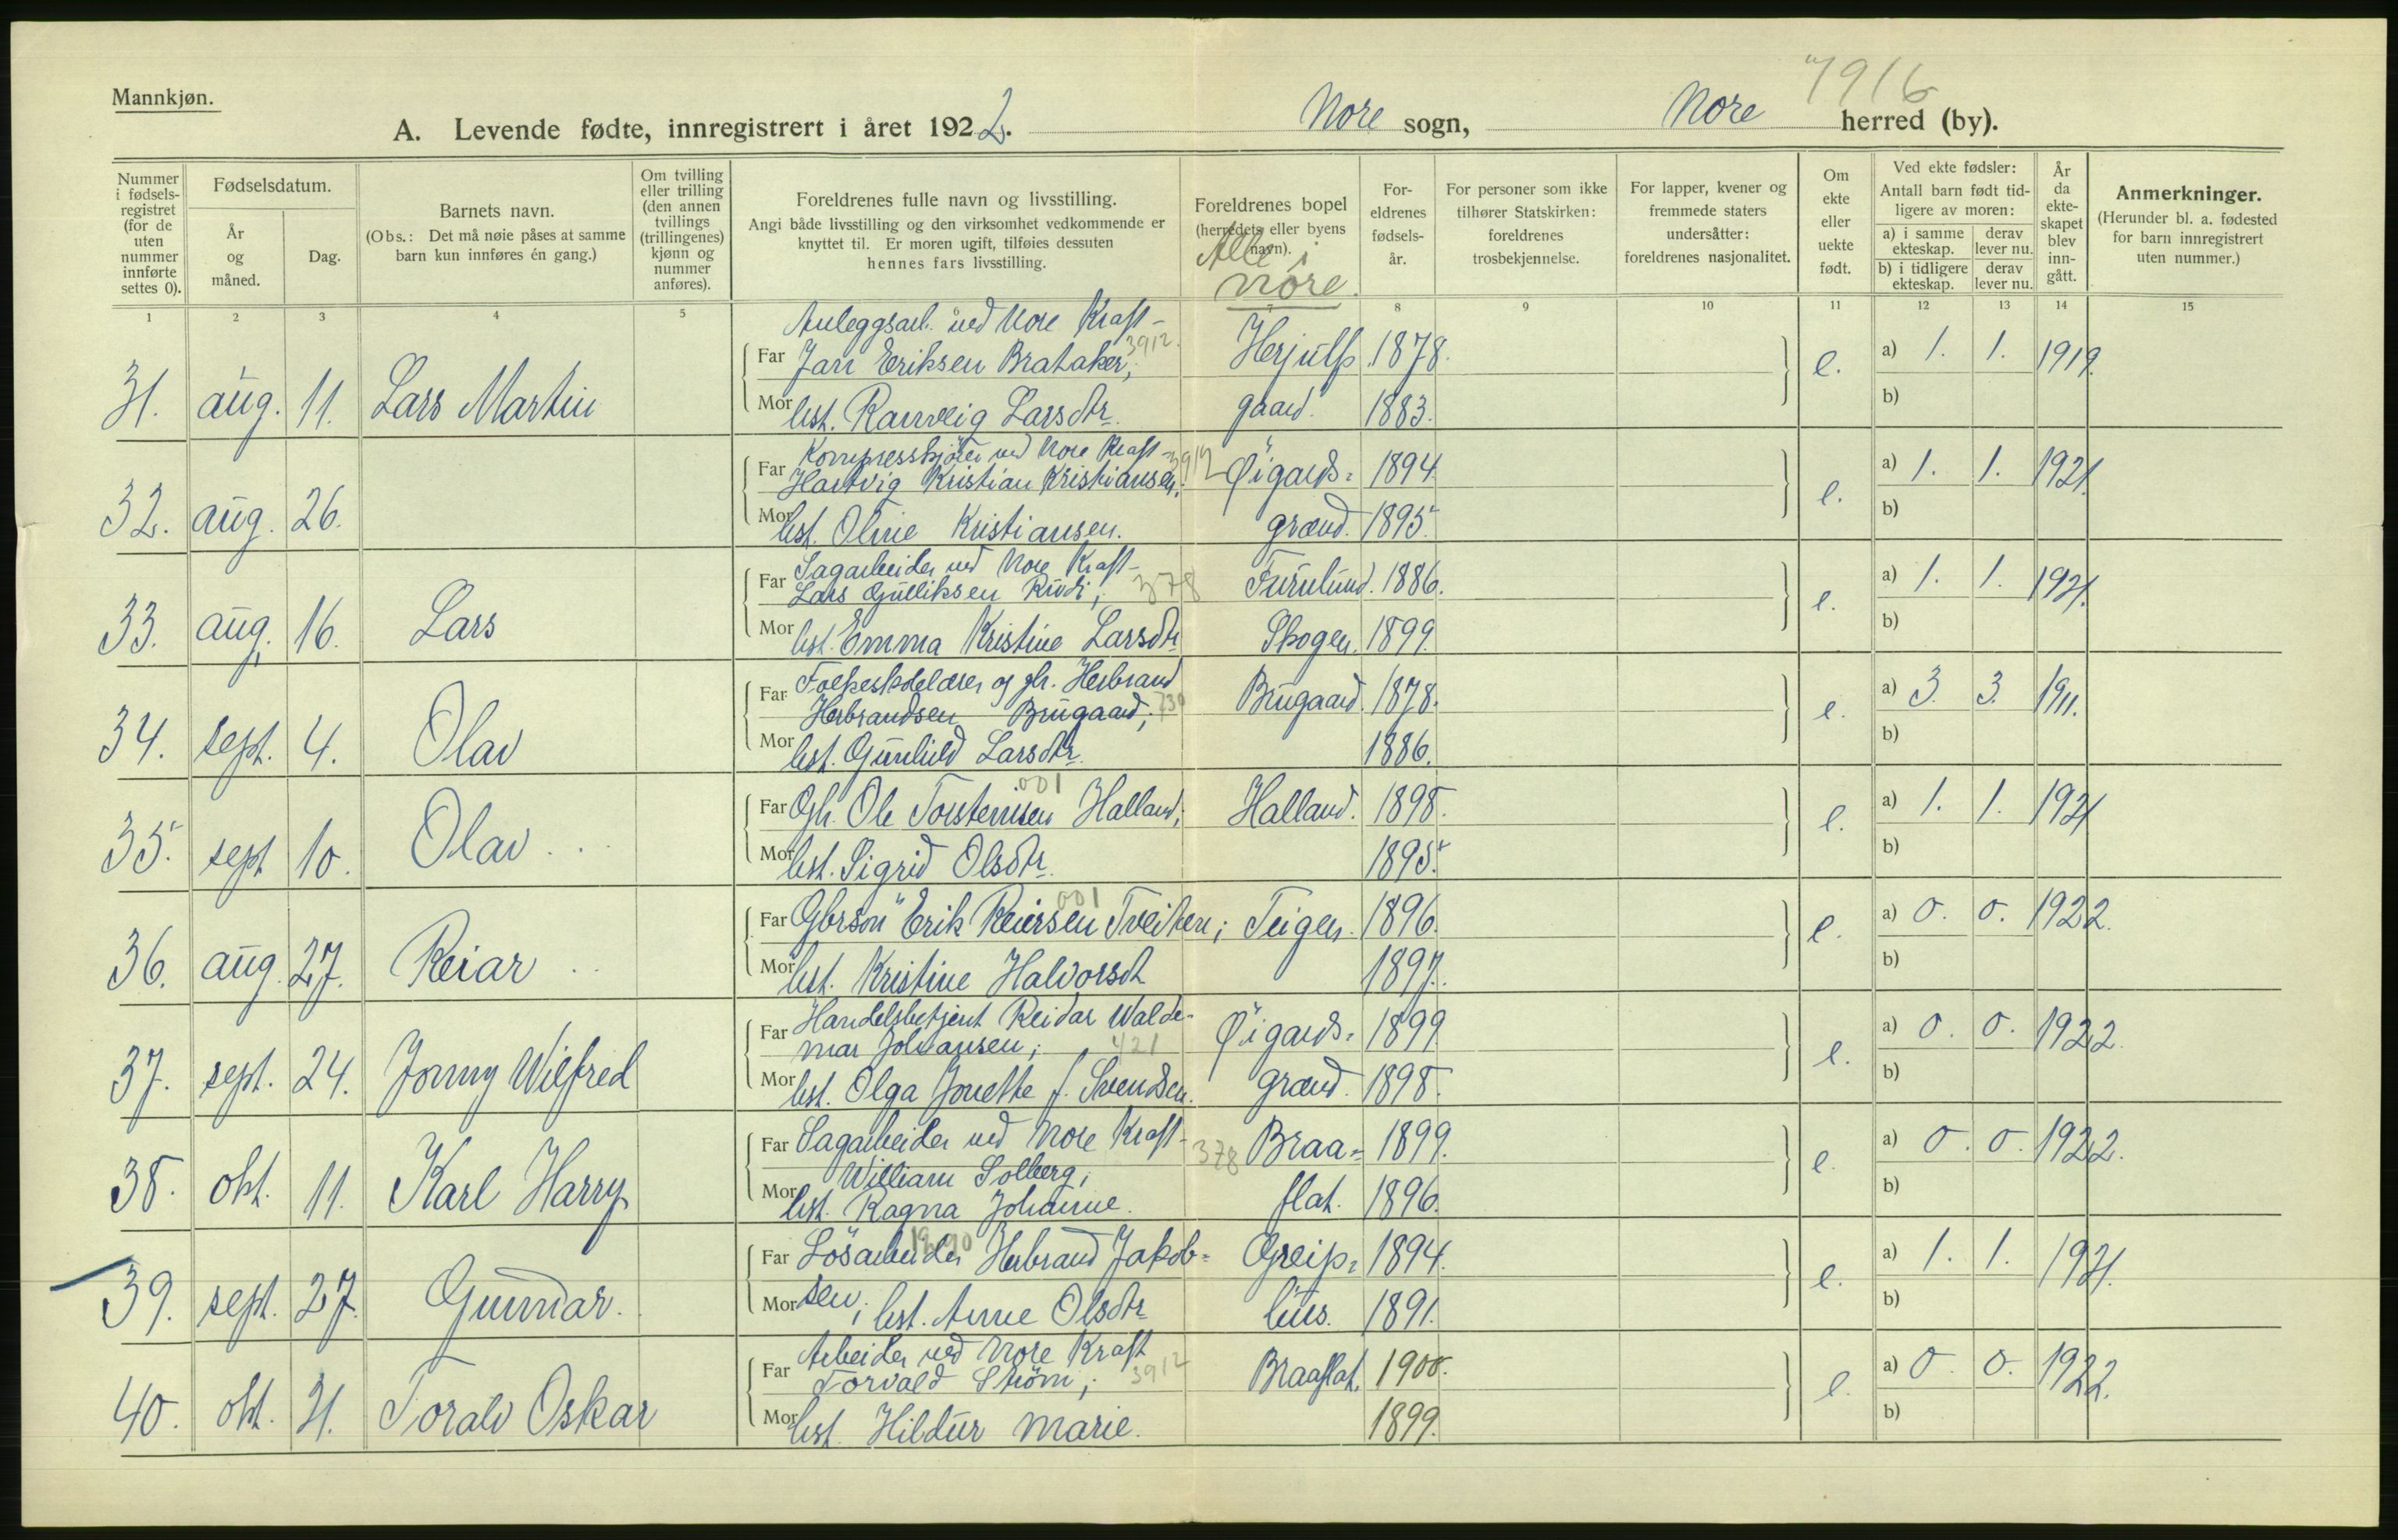 Mannkjøn.
7916
A. Levende fødte, innregistrert i året 1922. Nore sogn, Nore herred (by).
Nummer i fødsels-registret (for de uten nummer innførte settes 0).
Fødselsdatum.
År og måned.
Dag.
Barnets navn.
(Obs.: Det må nøie påses at samme barn kun innføres én gang.)
Om tvilling eller trilling (den annen tvillings (trillingenes) kjønn og nummer anføres).
Foreldrenes fulle navn og livsstilling.
Angi både livsstilling og den virksomhet vedkommende er knyttet til. Er moren ugift, tilføies dessuten hennes fars livsstilling.
Foreldrenes bopel (herredets eller byens navn).
Alle i Nore.
For-eldrenes fødsels-år.
For personer som ikke tilhører Statskirken: foreldrenes trosbekjennelse.
For lapper, kvener og fremmede staters undersåtter: foreldrenes nasjonalitet.
Om ekte eller uekte født.
Ved ekte fødsler:
Antall barn født tid-ligere av moren:
a) i samme ekteskap. derav lever nu.
b) i tidligere ekteskap. derav lever nu.
År da ekte-skapet blev inn-gått.
Anmerkninger.
(Herunder bl. a. fødested for barn innregistrert uten nummer.)
1 2 3 4 5 6 7 8 9 10 11 12 13 14 15
Anleggsarb. ved Nore Kraft- 3912.
Far Jan Eriksen Brataker; Herjulfs 1878. a) 1. 1. 1919.
31. aug. 11. Lars Martin e.
Mor hst. Ranveig Larsdtr. gaard. 1883. b)
Kompresskjörer ved Nore Kraft- 3912
Far Hartvig Kristian Kristiansen; Öigards= 1894. a) 1. 1. 1921.
32. aug. 26. e.
Mor hst. Oline Kristiansen. grænd. 1895. b)
Sagarbeider ved Nore Kraft-
Far Lars Gulliksen Rudi; 378 Furulund. 1886. a) 1. 1. 1921.
33. aug. 16. Lars e.
Mor hst. Emma Kristine Larsdtr Skogen. 1899. b)
Far Folkeskolelærer og gbr. Herbrand
Herbrandsen Brugaard; 730 Brugaard. 1878. a) 3. 3. 1911.
34. sept. 4. Olav e.
Mor hst. Gunhild Larsdtr. 1886. b)
001
Far Gbr. Ole Torsteinsen Halland; Halland. 1898. a) 1. 1. 1921
35. sept 10. Olav e.
Mor hst. Sigrid Olsdtr. 1895. b)
001
Far Gbrsön Erik Reiersen Tveiten; Teigen. 1896. a) 0. 0. 1922.
36. aug. 27. Reiar e.
Mor hst. Kristine Halvorsdt 1897. b)
Far Handelsbetjent Reidar Walde-
mar Johansen; 421 Öigards= 1899 a) 0. 0. 1922.
37. sept. 24. Jonny Wilfred e.
Mor hst. Olga Jonette f. Svendsen. grænd. 1898. b)
Far Sagarbeider ved Nore Kraft- 378 Braa= 1899. a) 0. 0. 1922.
William Solberg;
38. okt. 11. Karl Harry e.
Mor hst. Ragna Johanne. flat. 1896. b)
Far Lösarbeider Herbrand Jakob= Greip= 1894. a) 1. 1. 1921.
39. sept. 27. Gunnar. e.
Mor sen; hst. Anne Olsdtr hus. 1891. b)
Arbeider ved Nore Kraft
Far Torvald Ström; 3912 Braaflat. 1900. a) 0. 0. 1922.
40. okt. 21. Toralv Oskar e.
Mor hst. Hildur Marie. 1899. b)